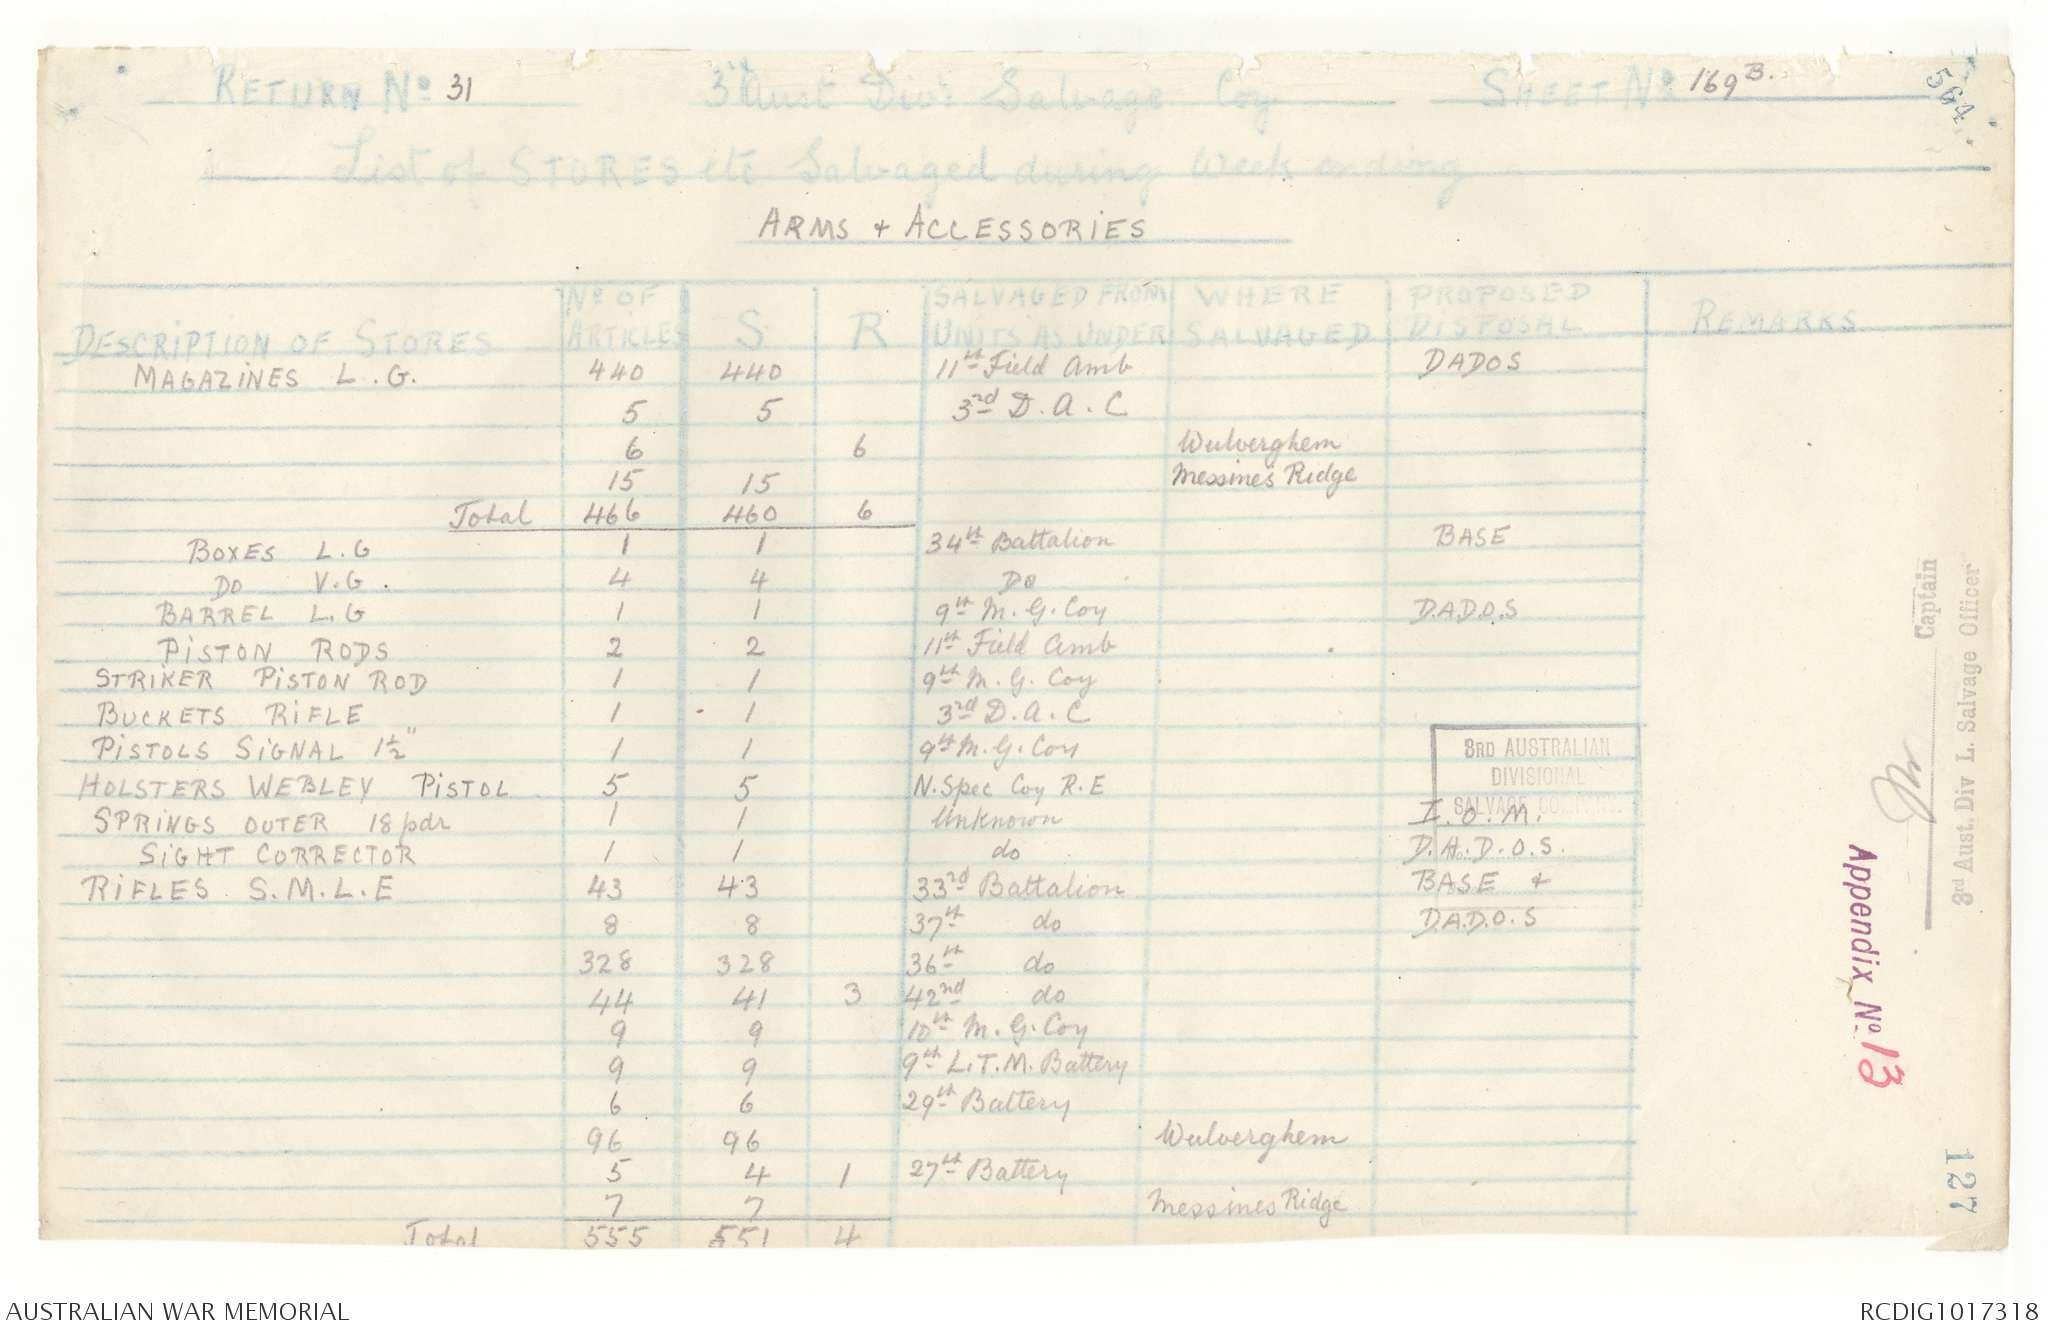 RETURN No 31 3rd Aust Div: Salvage Coy SHEET No 169B.
564.
List of STORES etc Salvaged during Week ending
ARMS + ACCESSORIES
DESCRIPTION OF STORES No OF ARTICLES S R SALVAGED FROM UNITS AS UNDER WHERE SALVAGED PROPOSED DISPOSAL REMARKS
MAGAZINES L.G. 440 440 11th Field Amb DADOS
5 5 3rd D.A.C
6 6 Wulverghem
15 15 Messines Ridge
Total 466 460 6
BOXES L.G 1 1 34th Battalion BASE
DO V.G. 4 4 DO
BARREL L.G 1 1 9th M.G. Coy D.A.D.O.S
PISTON RODS 2 2 11th Field Amb
STRIKER PISTON ROD 1 1 9th M.G. Coy
BUCKETS RIFLE 1 1 3rd D.A.C
PISTOLS SIGNAL 1½" 1 1 9th M.G. Coy
HOLSTERS WEBLEY PISTOL 5 5 N. Spec Coy R.E
SPRINGS OUTER 18pdr 1 1 Unknown I.O.M.
SIGHT CORRECTOR 1 1 do D.A.D.O.S.
RIFLES S.M.L.E 43 43 33rd Battalion BASE +
8 8 37th do D.A.D.O.S
328 328 36th do
44 41 3 42nd do
9 9 10th M.G. Coy
9 9 9th L.T.M. Battery
6 6 29th Battery
96 96 Wulverghem
5 4 1 27th Battery
7 7 Messines Ridge
Total 555 551 4
3RD AUSTRALIAN
DIVISIONAL
SALVAGE COMPANY
Captain
3rd Aust. Div L. Salvage Officer
Appendix No. 13
127
AUSTRALIAN WAR MEMORIAL RCDIG1017318